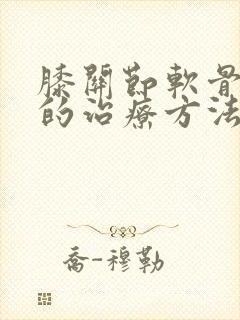 膝關節軟骨
的治療方法
喬-穆勒